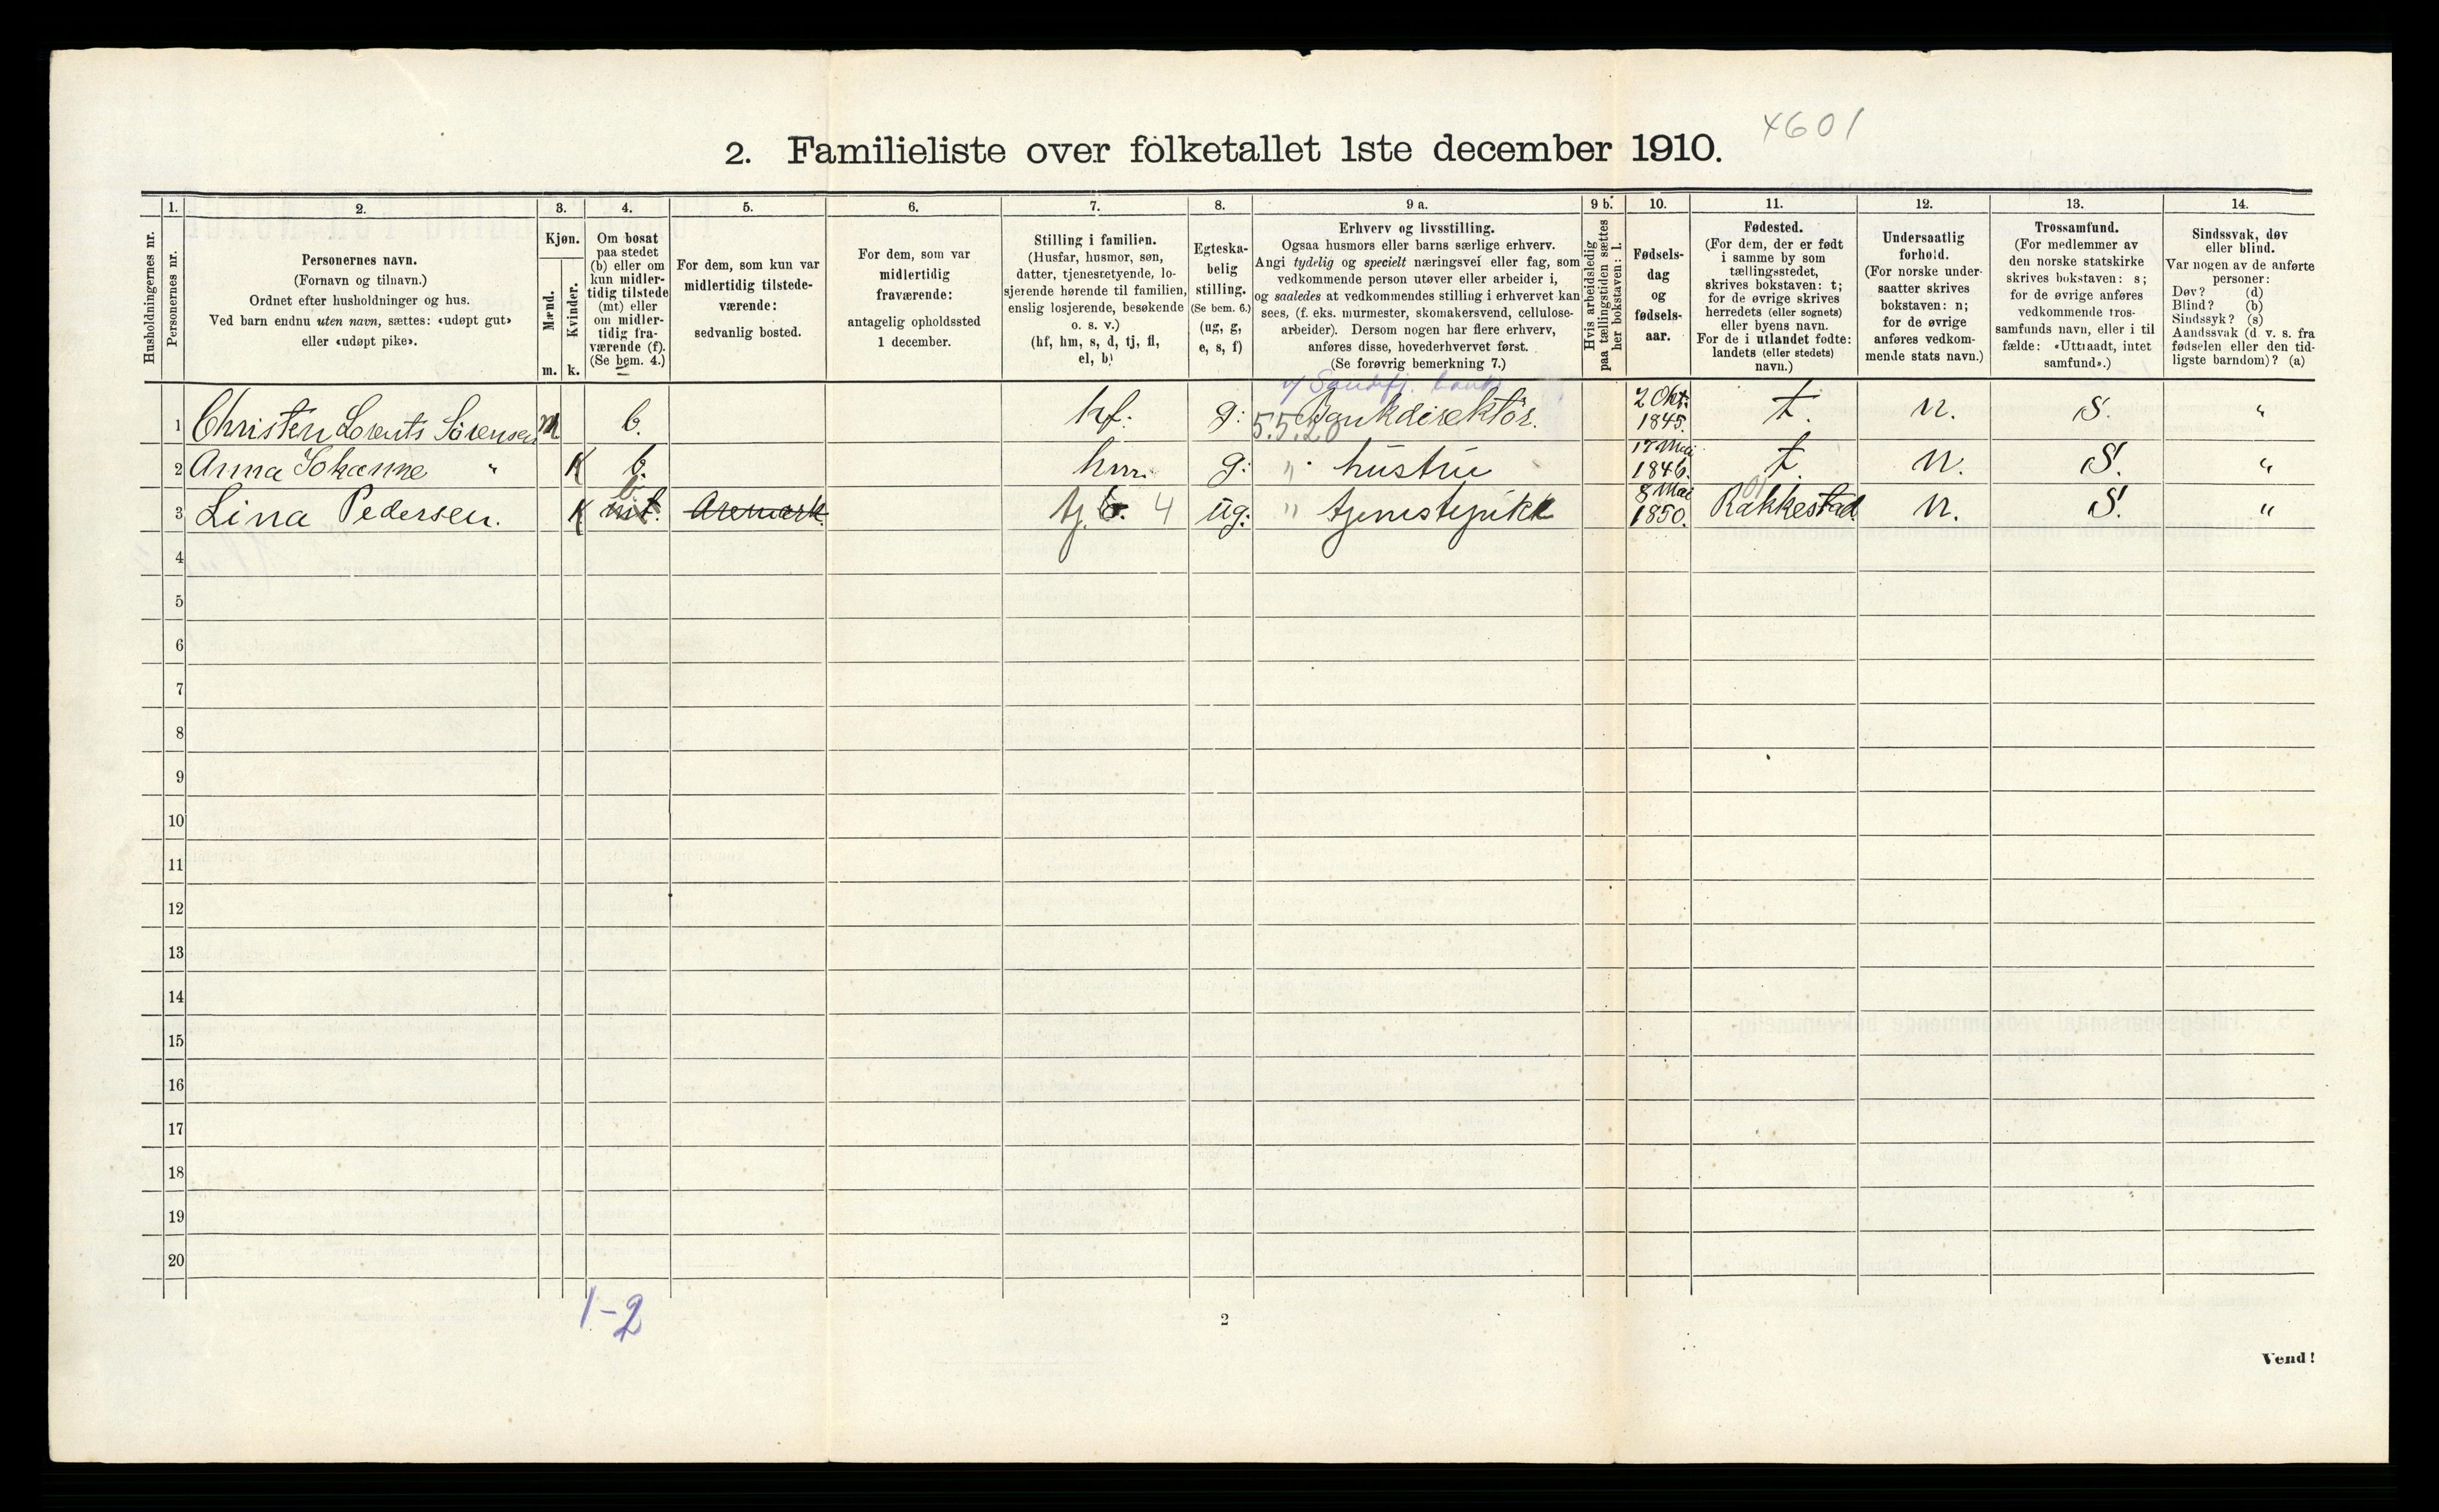 4601
2. Familieliste over folketallet 1ste december 1910.
Husholdningernes nr.
1.
Personernes nr.
2.
Personernes navn.
(Fornavn og tilnavn.)
Ordnet efter husholdninger og hus.
Ved barn endnu uten navn, sættes: «udøpt gut»
eller «udøpt pike».
3.
Kjøn.
Mænd.
Kvinder.
m. k.
4.
Om bosat
paa stedet
(b) eller om
kun midler-
tidig tilstede
(mt) eller
om midler-
tidig fra-
værende (f).
(Se bem. 4.)
5.
For dem, som kun var
midlertidig tilstede-
værende:
sedvanlig bosted.
6.
For dem, som var
midlertidig
fraværende:
antagelig opholdssted
1 december.
7.
Stilling i familien.
(Husfar, husmor, søn,
datter, tjenestetyende, lo-
sjerende hørende til familien,
enslig losjerende, besøkende
o. s. v.)
(hf, hm, s, d, tj, fl,
el, b)
8.
Egteska-
belig
stilling.
(Se bem. 6.)
(ug, g,
e, s, f)
9 a.
Erhverv og livsstilling.
Ogsaa husmors eller barns særlige erhverv.
Angi tydelig og specielt næringsvei eller fag, som
vedkommende person utøver eller arbeider i,
og saaledes at vedkommendes stilling i erhvervet kan
sees, (f. eks. murmester, skomakersvend, cellulose-
arbeider). Dersom nogen har flere erhverv,
anføres disse, hovederhvervet først.
(Se forøvrig bemerkning 7.)
9 b.
Hvis arbeidsledig
paa tællingstiden sættes
her bokstaven: l.
10.
Fødsels-
dag
og
fødsels-
aar.
11.
Fødested.
(For dem, der er født
i samme by som
tællingsstedet,
skrives bokstaven: t;
for de øvrige skrives
herredets (eller sognets)
eller byens navn.
For de i utlandet fødte:
landets (eller stedets)
navn.)
12.
Undersaatlig
forhold.
(For norske under-
saatter skrives
bokstaven: n;
for de øvrige
anføres vedkom-
mende stats navn.)
13.
Trossamfund.
(For medlemmer av
den norske statskirke
skrives bokstaven: s;
for de øvrige anføres
vedkommende tros-
samfunds navn, eller i til
fælde: «Uttraadt, intet
samfund».)
14.
Sindssvak, døv
eller blind.
Var nogen av de anførte
personer:
Døv? (d)
Blind? (b)
Sindssyk? (s)
Aandssvak (d. v. s. fra
fødselen eller den tid-
ligste barndom)? (a)
v/ Sandefj. bank
1 Christen Lorents Sörensen m b. hf. g: 5.5.20 Bankdirektör. 2 Okt. 1845. t. n. S. "
2 Anna Johanne " K b. hm. g: " hustru 17 Mai 1846. t. n. S. "
3 Lina Pedersen. K mt. b. Aremark. tj. b. 4 ug: " tjenestepike 8 Mai 1850. Rakkestad 01 n. S. "
4
5
6
7
8
9
10
11
12
13
14
15
16
17
18
19
20
1-2
2
Vend!